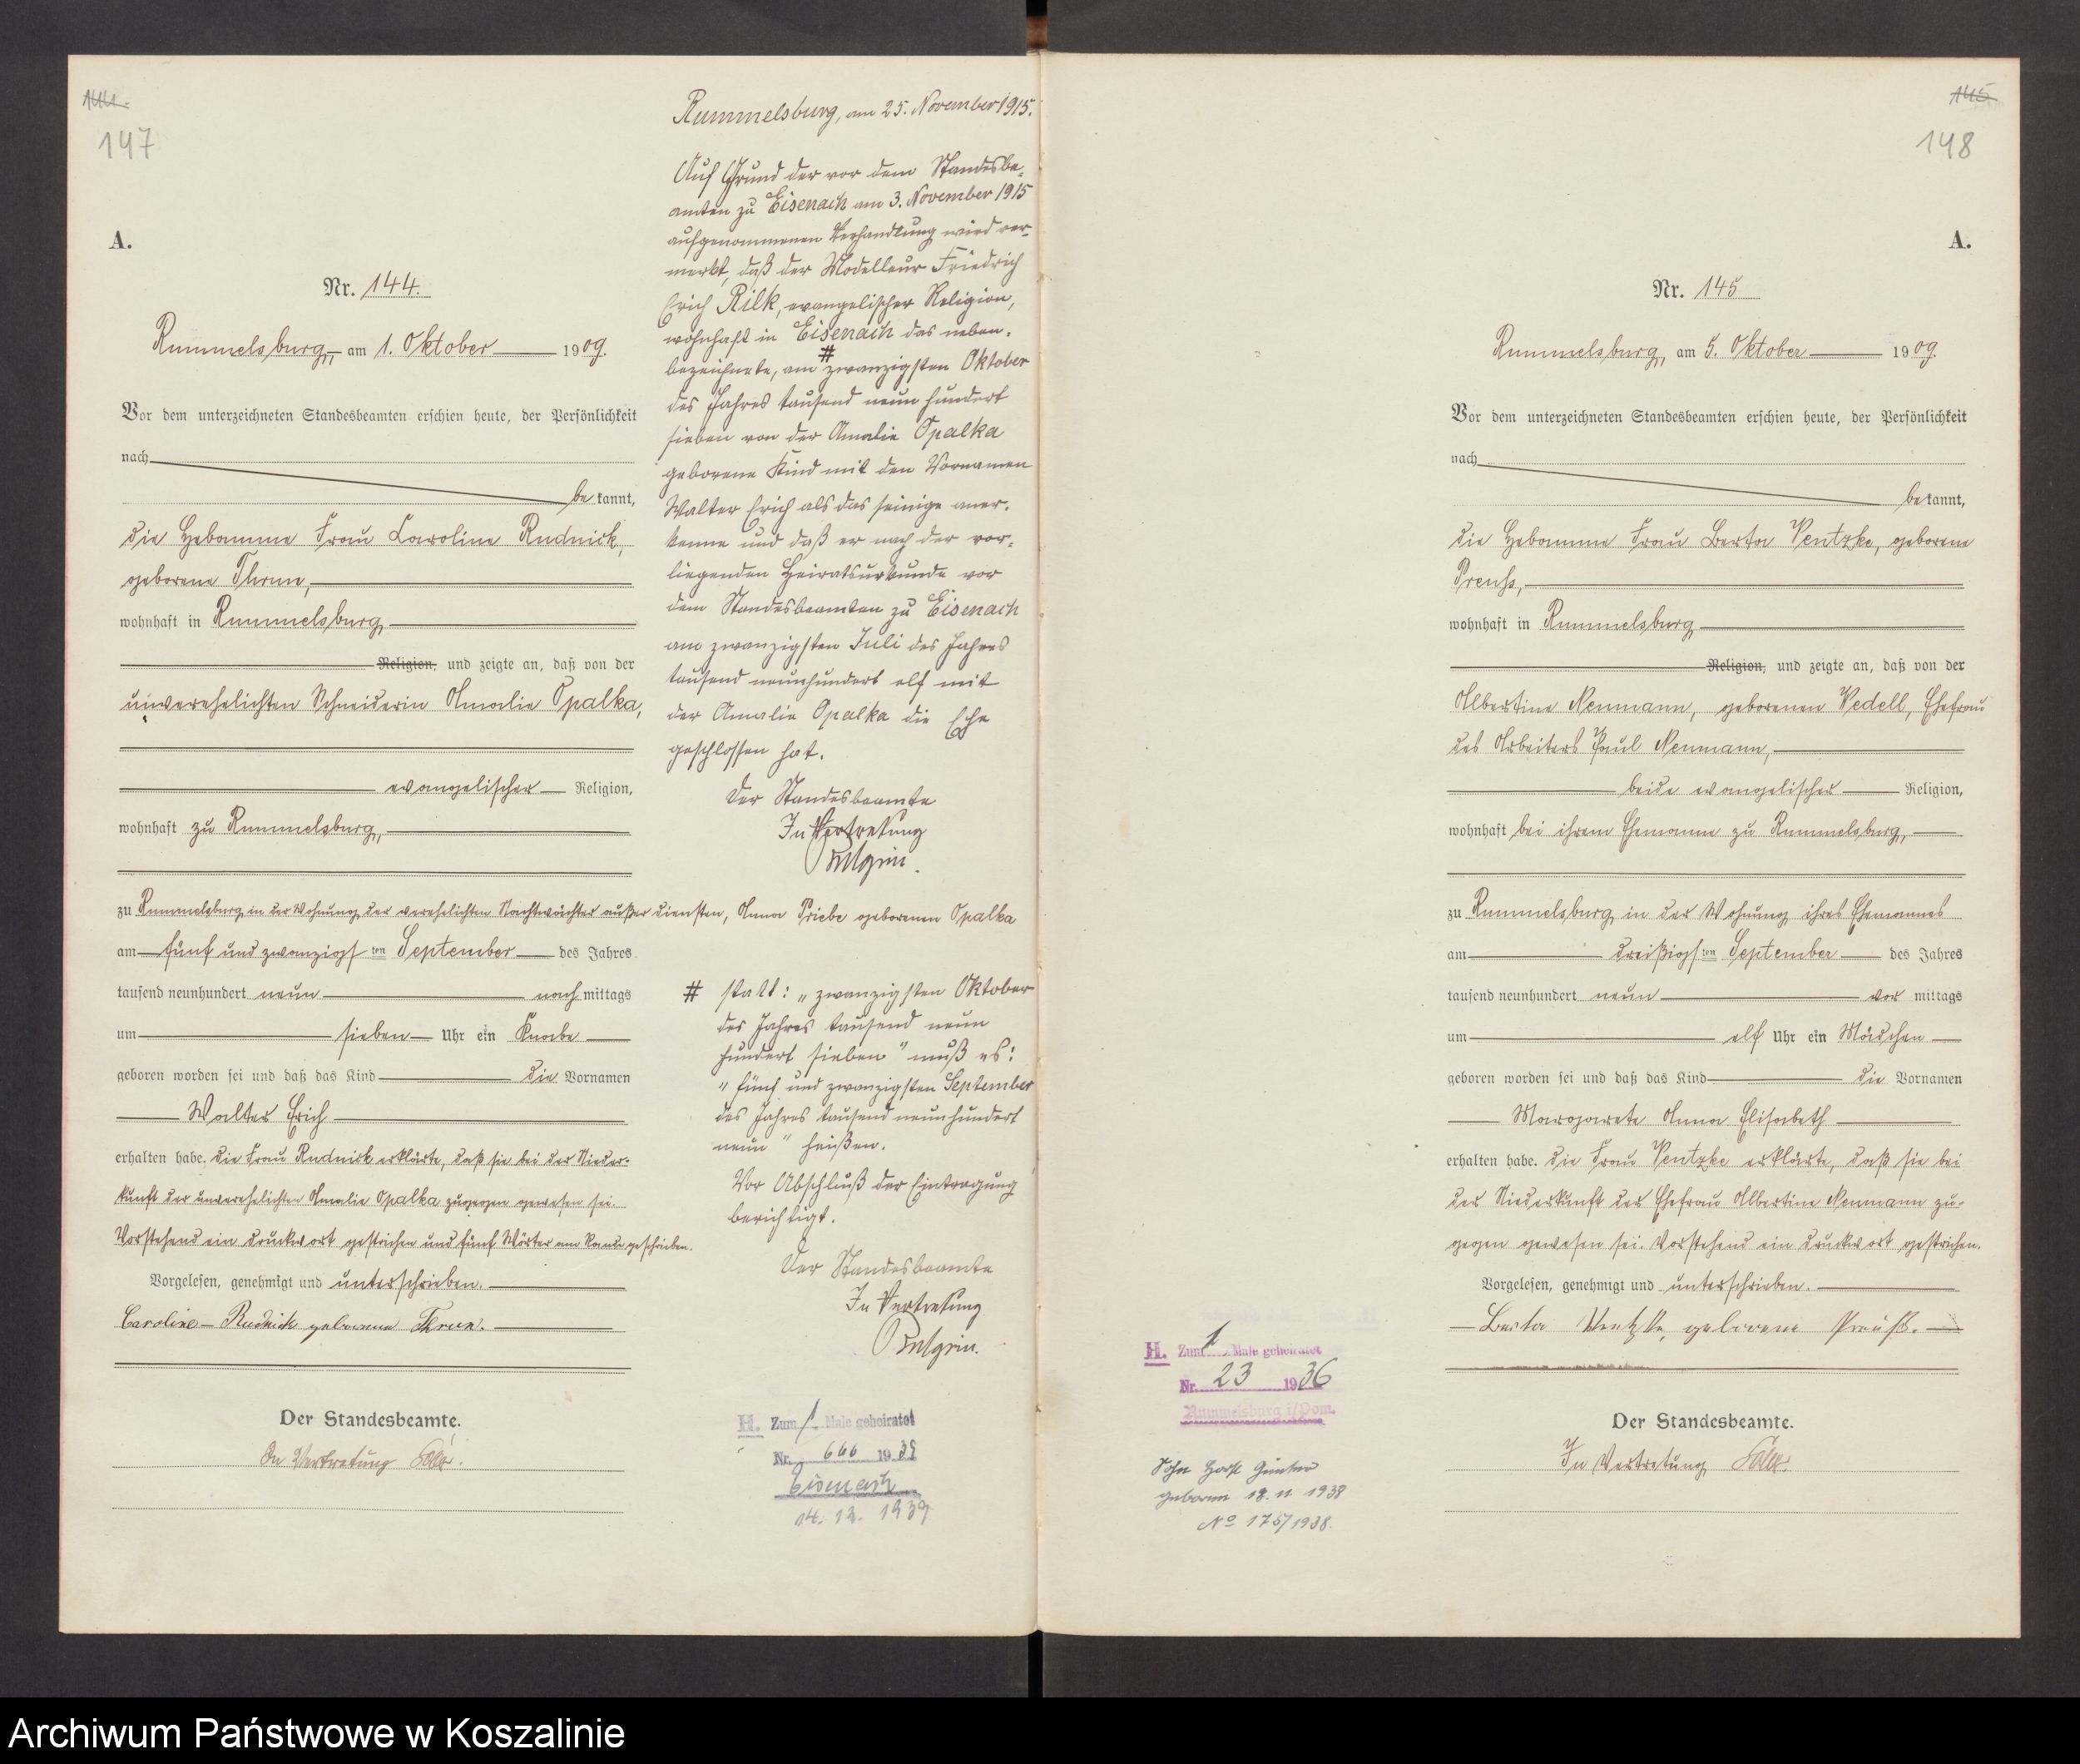 144.
147
A.
Nr. 144.
Rummelsburg, am 1. Oktober 1909.
Vor dem unterzeichneten Standesbeamten erschien heute, der Persönlichkeit
nach
bekannt,
die Hebamme Frau Caroline Rudnick,
geborene Thrun,
wohnhaft in Rummelsburg,
Religion, und zeigte an, daß von der
unverehelichten Schneiderin Amalie Opalka,
evangelischer Religion,
wohnhaft zu Rummelsburg,
zu Rummelsburg in der Wohnung der verehelichten Nachtwächter außer Diensten, Anna Priebe geborenen Opalka
am fünf und zwanzigsten September des Jahres
tausend neunhundert neun nachmittags
um sieben Uhr ein Knabe
geboren worden sei und daß das Kind die Vornamen
Walter Erich
erhalten habe. Die Frau Rudnick erklärte, daß sie bei der Nieder-
kunft der unverehelichten Amalie Opalka zugegen gewesen sei.
Vorstehend ein Druckwort gestrichen und fünf Wörter am Rande geschrieben.
Vorgelesen, genehmigt und unterschrieben.
Caroline Rudnick geborene Thrun.
Der Standesbeamte.
In Vertretung
Rummelsburg, am 25. November 1915.
Auf Grund der vor dem Standesbe-
amten zu Eisenach am 3. November 1915
aufgenommenen Verhandlung wird ver-
merkt, daß der Modelleur Friedrich
Erich Rilk, evangelischer Religion,
wohnhaft in Eisenach das neben-
bezeichnete, am # zwanzigsten Oktober
des Jahres tausend neun hundert
sieben von der Amalie Opalka
geborene Kind mit den Vornamen
Walter Erich als das seinige aner-
kenne und daß er nach der vor-
liegenden Heiratsurkunde vor
dem Standesbeamten zu Eisenach
am zwanzigsten Juli des Jahres
tausend neunhundert elf mit
der Amalie Opalka die Ehe
geschlossen hat.
Der Standesbeamte
In Vertretung
# statt: „zwanzigsten Oktober
des Jahres tausend neun
hundert sieben" muß es:
„fünf und zwanzigsten September
des Jahres tausend neunhundert
neun" heißen.
Vor Abschluß der Eintragung
berichtigt.
Der Standesbeamte
In Vertretung
H. Zum 1. Male geheiratet
Nr. 666 1939
Eisenach
14. 12. 1939
145.
148
A.
Nr. 145
Rummelsburg, am 5. Oktober 1909.
Vor dem unterzeichneten Standesbeamten erschien heute, der Persönlichkeit
nach
bekannt,
die Hebamme Frau Berta Ventzke, geborene
Preuß,
wohnhaft in Rummelsburg
Religion, und zeigte an, daß von der
Albertine Neumann, geborenen Wedell, Ehefrau
des Arbeiters Paul Neumann,
beide evangelischer Religion,
wohnhaft bei ihrem Ehemanne zu Rummelsburg,
zu Rummelsburg in der Wohnung ihres Ehemannes
am dreißigsten September des Jahres
tausend neunhundert neun vor mittags
um elf Uhr ein Mädchen
geboren worden sei und daß das Kind die Vornamen
Margarete Anna Elisabeth
erhalten habe. Die Frau Ventzke erklärte, daß sie bei
der Niederkunft der Ehefrau Albertine Neumann zu-
gegen gewesen sei. Vorstehend ein Druckwort gestrichen.
Vorgelesen, genehmigt und unterschrieben.
Berta Ventzke, geborene Preuß.
Der Standesbeamte.
In Vertretung
H. Zum 1 Male geheiratet
Nr. 23 1936
Rummelsburg i/Pom.
Sohn Horst Günter
geboren 18. 11. 1938
No 175/1938.
Archiwum Państwowe w Koszalinie